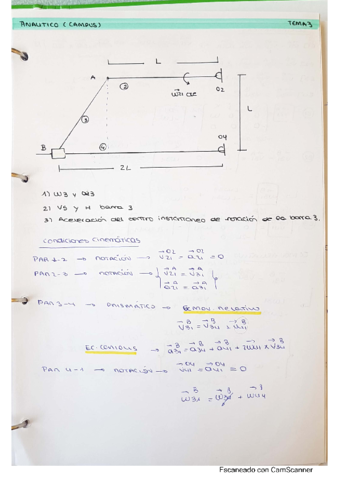 ANALITICO (CAMPUS) TEMA 3
L
A
2
W21 cte
O2
3
L
B
4
O4
2L
1) W3 y α3
2) V5 y H barra 3
3) Aceleración del centro instantáneo de rotación de la barra 3.
Condiciones cinemáticas
PAR 1-2 → rotación → V21^O2 = a21^O2 = 0
PAR 2-3 → rotación → V21^A = V31^A
a21^A = a31^A
PAR 3-4 → prismático → Ec mov. relativo
V31^B = V34^B + V41^B
Ec. coriolis → a31^B = a34^B + a41^B + 2W41 x V34^B
PAR 4-1 → rotación → V41^O4 = a41^O4 = 0
Escaneado con CamScanner